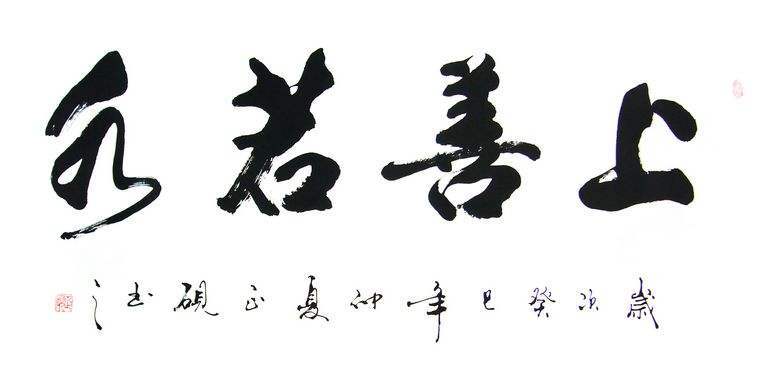 上善若水
歲次癸巳年仲夏正硯书之